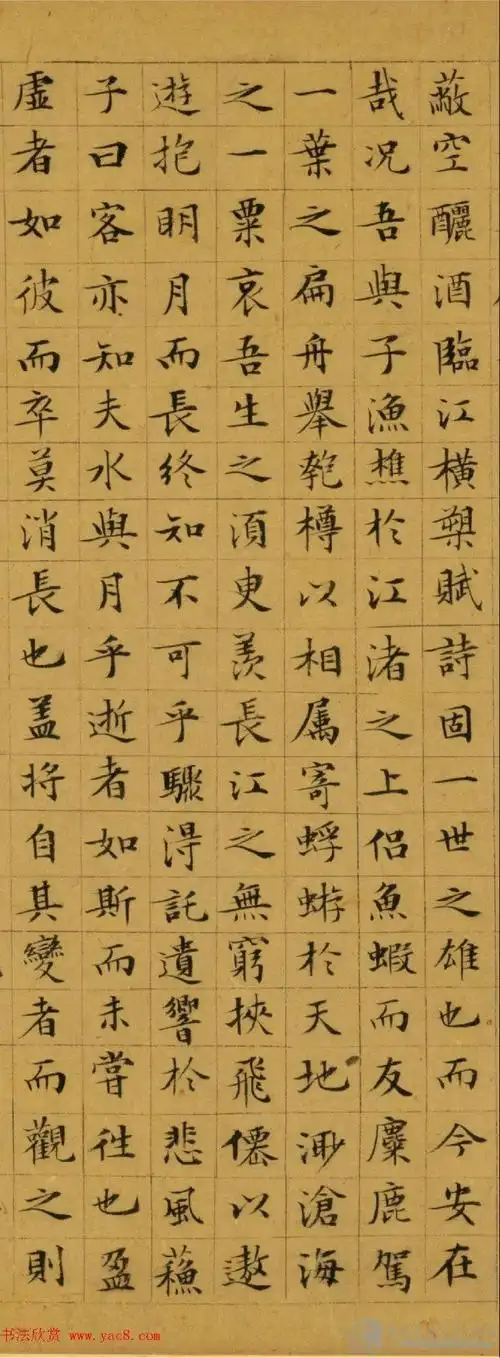 蔽空釃酒臨江橫槊賦詩固一世之雄也而今安在
哉况吾與子漁樵於江渚之上侶魚蝦而友麋鹿駕
一葉之扁舟舉匏樽以相属寄蜉蝣於天地渺滄海
之一粟哀吾生之湏臾羨長江之無窮挾飛僊以遨
遊抱明月而長終知不可乎驟得託遺響於悲風蘓
子曰客亦知夫水與月乎逝者如斯而未嘗往也盈
虛者如彼而卒莫消長也盖将自其變者而觀之則
书法欣赏 www.yac8.com